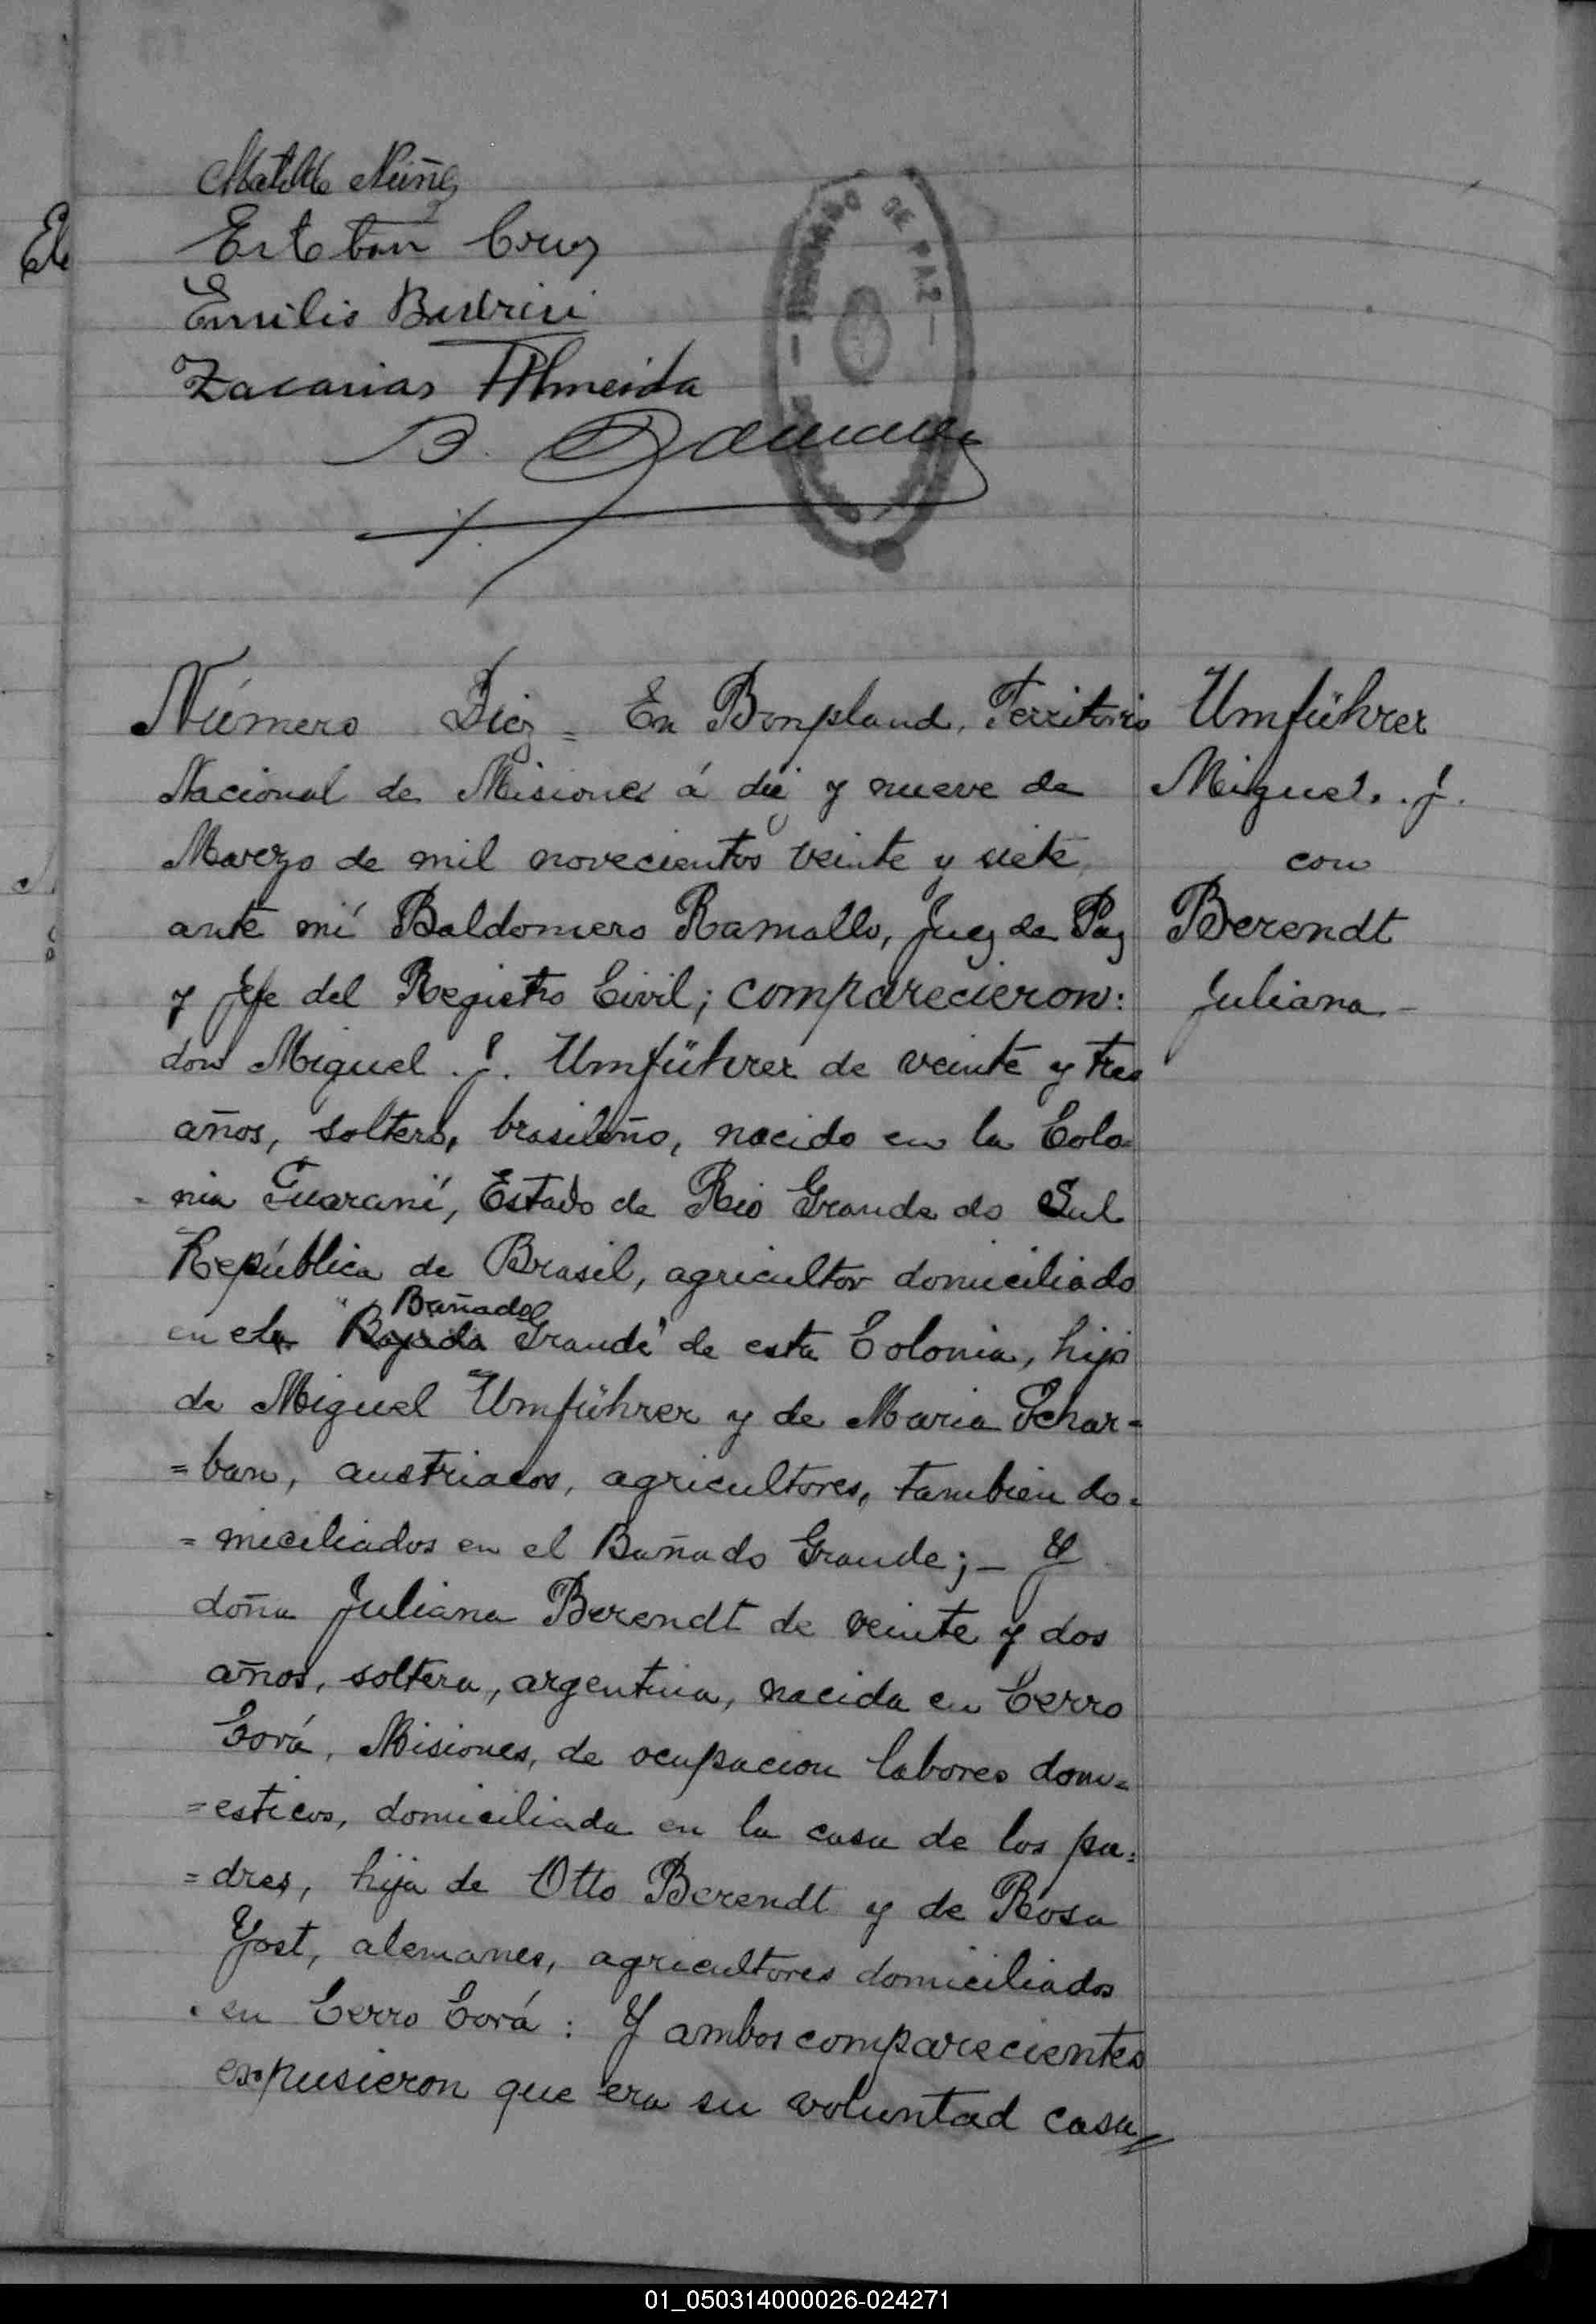 Matilde Nuñez
Esteban Cruz
Emilio
Zacarias Almeida
B. Ramallo
JUZGADO DE PAZ
Número Diez = En Bonpland, Territorio
Nacional de Misiones á diez y nueve de
Marzo de mil novecientos veinte y siete,
ante mí Baldomero Ramallo, Juez de Paz
y Jefe del Registro Civil; comparecieron:
don Miguel J. Umführer de veinte y tres
años, soltero, brasileño, nacido en la Colo-
- nia Guaraní, Estado de Rio Grande do Sul
República de Brasil, agricultor domiciliado
Bañado
en el "Bajada Grande" de esta Colonia, hijo
de Miguel Umführer y de Maria Schar-
=ban, austriacos, agricultores, tambien do-
= miciliados en el Bañado Grande; - Y
doña Juliana Berendt de veinte y dos
años, soltera, argentina, nacida en Cerro
Corá, Misiones, de ocupacion labores dom-
=esticos, domiciliada en la casa de los pa=
=dres, hija de Otto Berendt y de Rosa
Yost, alemanes, agricultores domiciliados
en Cerro Corá: Y ambos comparecientes
expusieron que era su voluntad casa
Umführer
Miguel. J.
con
Berendt
Juliana.-
01_050314000026-024271